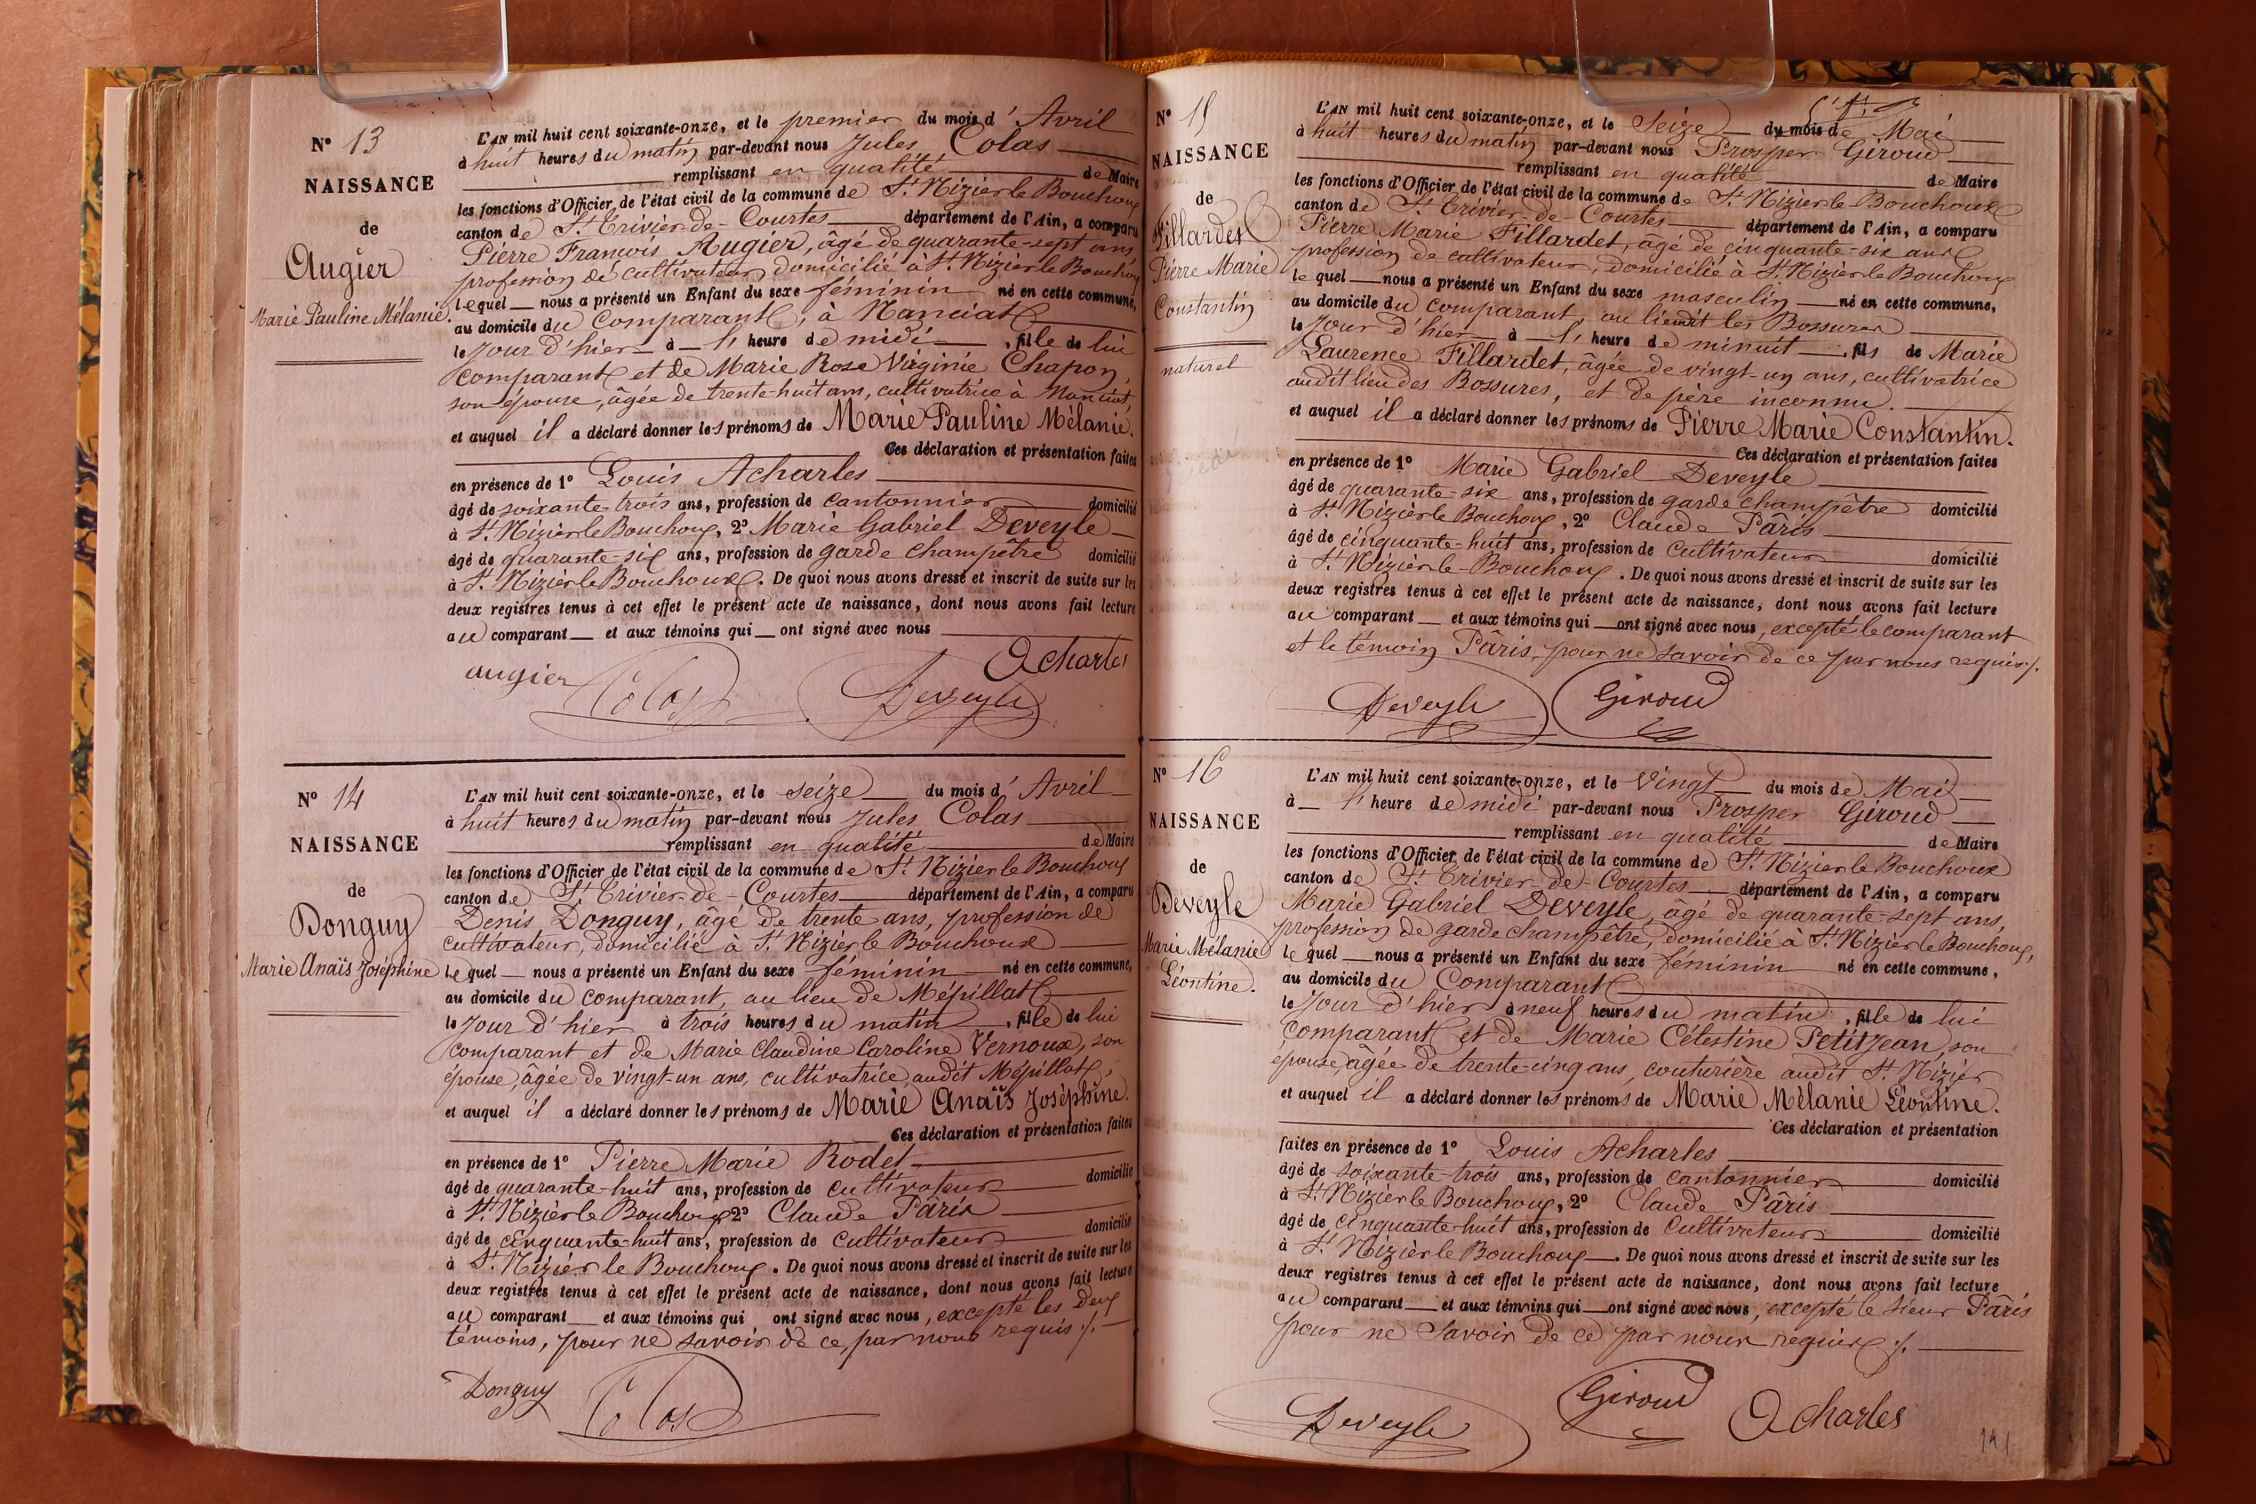 N° 13
NAISSANCE
de
Augier
Marie Pauline Mélanie.
L'AN mil huit cent soixante-onze, et le premier du mois d'Avril
à huit heures du matin par-devant nous Jules Colas
remplissant en qualité de Maire
les fonctions d'Officier de l'état civil de la commune de St Nizier le Bouchoux
canton de St Trivier-de-Courtes département de l'Ain, a comparu
Pierre François Augier, âgé de quarante-sept ans,
profession de cultivateur, domicilié à St Nizier le Bouchoux
lequel nous a présenté un Enfant du sexe féminin né en cette commune,
au domicile du comparant, à Nanciat
le jour d'hier à 1, heure de midi, fille de lui
comparant et de Marie Rose Virginie Chapon,
son épouse, âgée de trente-huit ans, cultivatrice à Nanciat,
et auquel il a déclaré donner les prénoms de Marie Pauline Mélanie.
Ces déclaration et présentation faites
en présence de 1° Louis Acharles
âgé de soixante-trois ans, profession de cantonnier domicilié
à St Nizier le Bouchoux, 2° Marie Gabriel Deveyle
âgé de quarante-six ans, profession de garde champêtre domicilié
à St Nizier le Bouchoux. De quoi nous avons dressé et inscrit de suite sur les
deux registres tenus à cet effet le présent acte de naissance, dont nous avons fait lecture
au comparant et aux témoins qui ont signé avec nous
augier Colas Deveyle Acharles
N° 14
NAISSANCE
de
Donguy
Marie Anaïs Joséphine
L'AN mil huit cent soixante-onze, et le seize du mois d'Avril
à huit heures du matin par-devant nous Jules Colas
remplissant en qualité de Maire
les fonctions d'Officier de l'état civil de la commune de St Nizier le Bouchoux
canton de St Trivier-de-Courtes département de l'Ain, a comparu
Denis Donguy, âgé de trente ans, profession de
cultivateur, domicilié à St Nizier le Bouchoux
lequel nous a présenté un Enfant du sexe féminin né en cette commune,
au domicile du comparant, au lieu de Mépillat
le jour d'hier à trois heures du matin, fille de lui
comparant et de Marie Claudine Caroline Vernoux, son
épouse, âgée de vingt-un ans, cultivatrice, audit Mépillat,
et auquel il a déclaré donner les prénoms de Marie Anaïs Joséphine.
Ces déclaration et présentation faites
en présence de 1° Pierre Marie Rodet
âgé de quarante-huit ans, profession de cultivateur domicilié
à St Nizier le Bouchoux 2° Claude Pâris
âgé de cinquante-huit ans, profession de cultivateur domicilié
à St Nizier le Bouchoux. De quoi nous avons dressé et inscrit de suite sur les
deux registres tenus à cet effet le présent acte de naissance, dont nous avons fait lecture
au comparant et aux témoins qui ont signé avec nous, excepté les deux
témoins, pour ne savoir de ce, par nous requis ./.
Donguy Colas
N° 15
NAISSANCE
de
Fillardet
Pierre Marie
Constantin
naturel
L'AN mil huit cent soixante-onze, et le Seize du mois de Mai
à huit heures du matin par-devant nous Prosper Giroud
remplissant en qualité de Maire
les fonctions d'Officier de l'état civil de la commune de St Nizier le Bouchoux
canton de St Trivier-de-Courtes département de l'Ain, a comparu
Pierre Marie Fillardet, âgé de cinquante-six ans
profession de cultivateur, domicilié à St Nizier le Bouchoux
lequel nous a présenté un Enfant du sexe masculin né en cette commune,
au domicile du comparant, au lieudit les Bossures
le jour d'hier à 1, heure de minuit, fils de Marie
Laurence Fillardet, âgée de vingt-un ans, cultivatrice
audit lieu des Bossures, et de père inconnu.
et auquel il a déclaré donner les prénoms de Pierre Marie Constantin.
Ces déclaration et présentation faites
en présence de 1° Marie Gabriel Deveyle
âgé de quarante-six ans, profession de garde champêtre domicilié
à St Nizier le Bouchoux, 2° Claude Pâris
âgé de cinquante-huit ans, profession de cultivateur domicilié
à St Nizier-le-Bouchoux. De quoi nous avons dressé et inscrit de suite sur les
deux registres tenus à cet effet le présent acte de naissance, dont nous avons fait lecture
au comparant et aux témoins qui ont signé avec nous, excepté le comparant
et le témoin Pâris, pour ne savoir de ce par nous requis ./.
Deveyle Giroud
N° 16
NAISSANCE
de
Deveyle
Marie Mélanie
Léontine.
L'AN mil huit cent soixante-onze, et le Vingt du mois de Mai
à 1, heure de midi par-devant nous Prosper Giroud
remplissant en qualité de Maire
les fonctions d'Officier de l'état civil de la commune de St Nizier le Bouchoux
canton de St Trivier-de-Courtes département de l'Ain, a comparu
Marie Gabriel Deveyle, âgé de quarante-sept ans,
profession de garde champêtre, domicilié à St Nizier le Bouchoux,
lequel nous a présenté un Enfant du sexe féminin né en cette commune,
au domicile du Comparant
le jour d'hier à neuf heures du matin, fille de lui
comparant et de Marie Célestine Petitjean, son
épouse, âgée de trente-cinq ans, couturière audit St Nizier
et auquel il a déclaré donner les prénoms de Marie Mélanie Léontine.
Ces déclaration et présentation
faites en présence de 1° Louis Acharles
âgé de soixante-trois ans, profession de cantonnier domicilié
à St Nizier le Bouchoux, 2° Claude Pâris
âgé de cinquante-huit ans, profession de cultivateur domicilié
à St Nizier le Bouchoux. De quoi nous avons dressé et inscrit de suite sur les
deux registres tenus à cet effet le présent acte de naissance, dont nous avons fait lecture
au comparant et aux témoins qui ont signé avec nous, excepté le sieur Pâris
pour ne savoir de ce par nous requis ./.
Deveyle Giroud Acharles